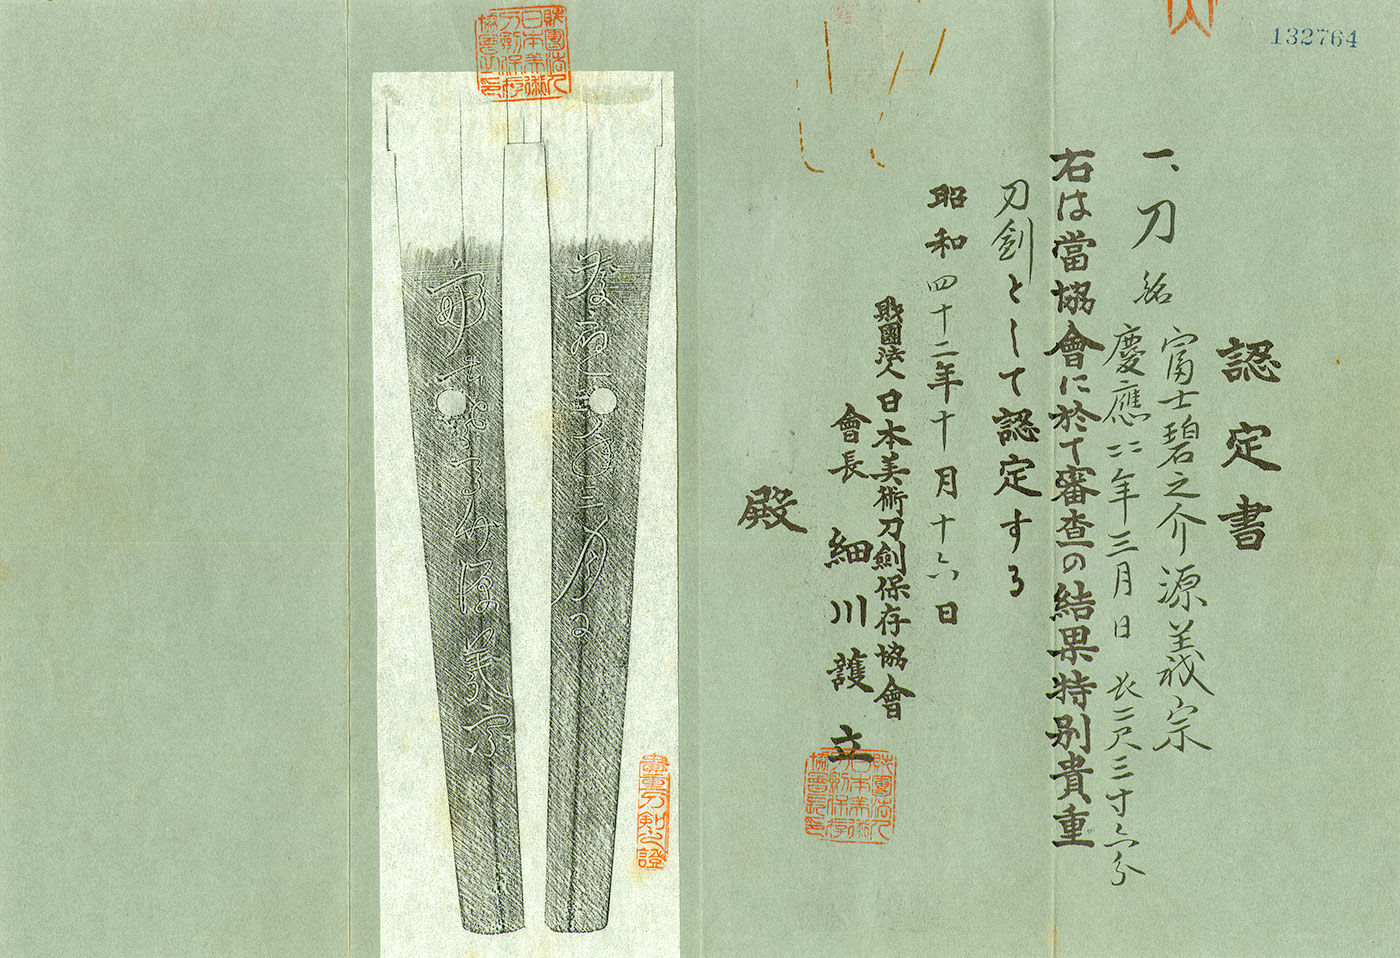 132764
認定書
一、刀 銘 富士碧之介源義宗
慶應二年三月日 長二尺三寸六分
右は當協會に於て審査の結果特別貴重
刀劍として認定する
昭和四十二年十月十六日
財團法人日本美術刀劍保存協會
會長 細川護立
殿
財團法人
日本美術
刀劍保存
協會長印
慶應二
三月日
源義宗
貴重刀剣之證
財團法人
日本美術
刀劍保存
協會長印